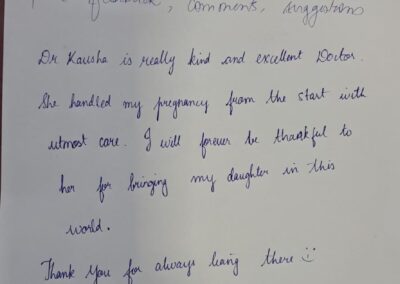 feedback, comments, suggestions
Dr Kausha is really kind and excellent Doctor.
She handled my pregnancy from the start with
utmost care. I will forever be thankful to
her for bringing my daughter in this
world.
Thank you for always being there :)